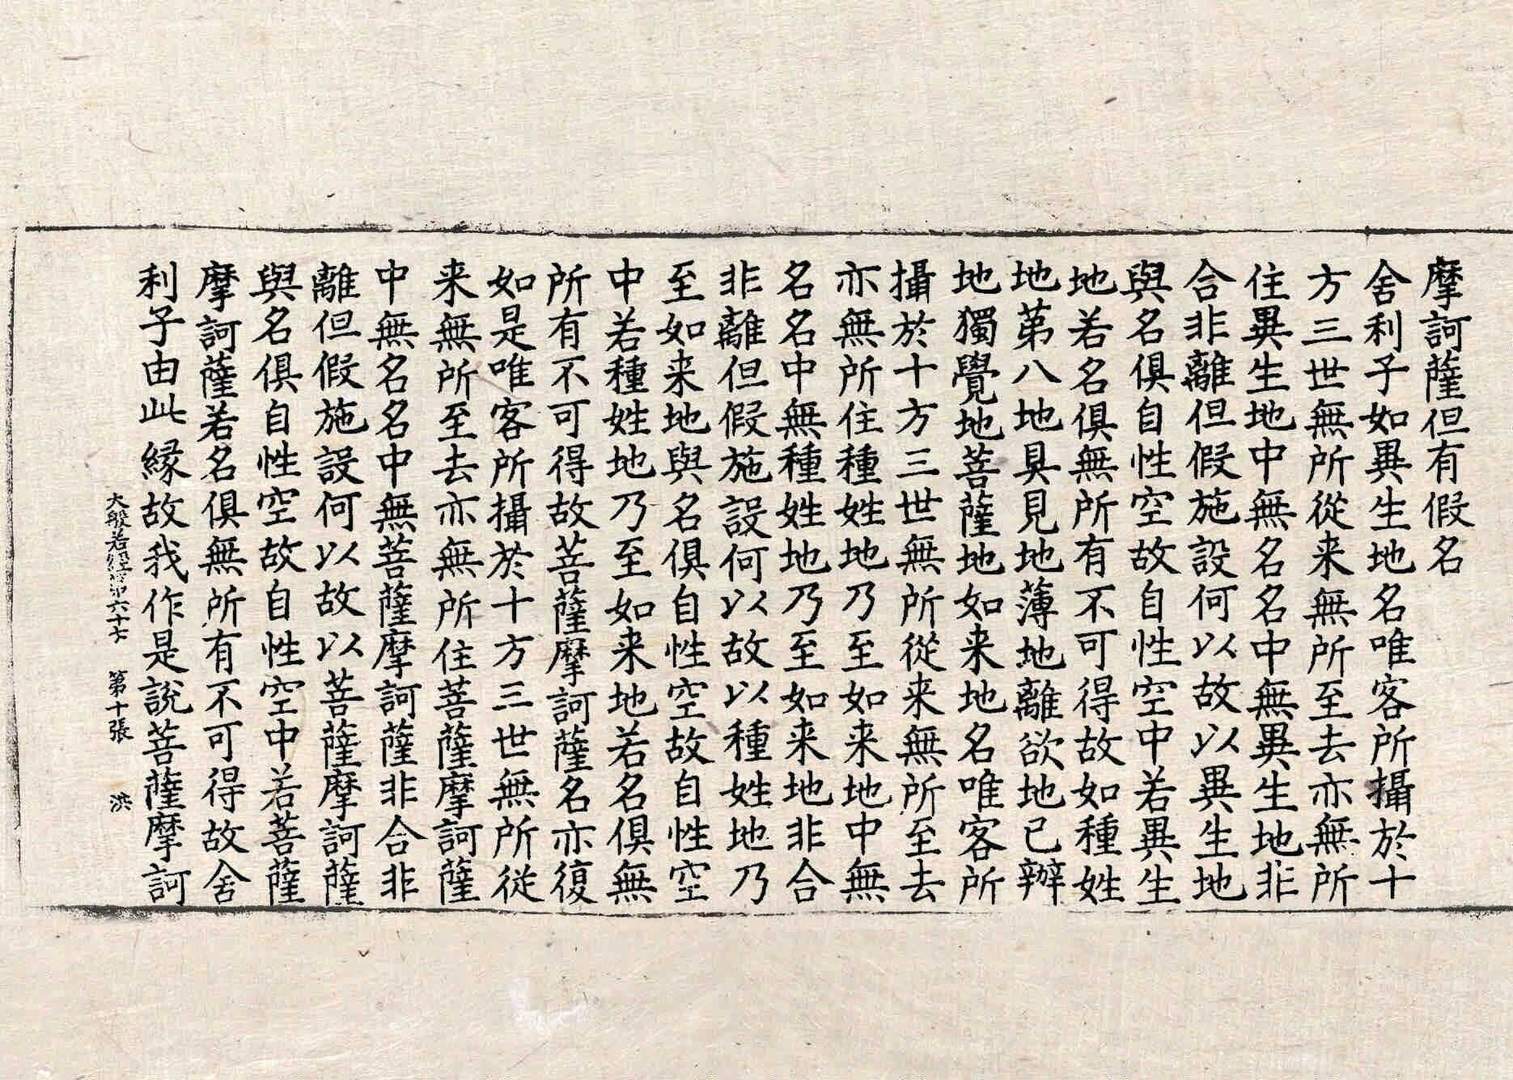 摩訶薩但有假名
舍利子如異生地名唯客所攝於十
方三世無所從来無所至去亦無所
住異生地中無名名中無異生地非
合非離但假施設何以故以異生地
與名俱自性空故自性空中若異生
地若名俱無所有不可得故如種姓
地第八地具見地薄地離欲地已辦
地獨覺地菩薩地如来地名唯客所
攝於十方三世無所從来無所至去
亦無所住種姓地乃至如来地中無
名名中無種姓地乃至如来地非合
非離但假施設何以故以種姓地乃
至如来地與名俱自性空故自性空
中若種姓地乃至如来地若名俱無
所有不可得故菩薩摩訶薩名亦復
如是唯客所攝於十方三世無所從
来無所至去亦無所住菩薩摩訶薩
中無名名中無菩薩摩訶薩非合非
離但假施設何以故以菩薩摩訶薩
與名俱自性空故自性空中若菩薩
摩訶薩若名俱無所有不可得故舍
利子由此緣故我作是說菩薩摩訶
大般若經第六十七 第十張 洪